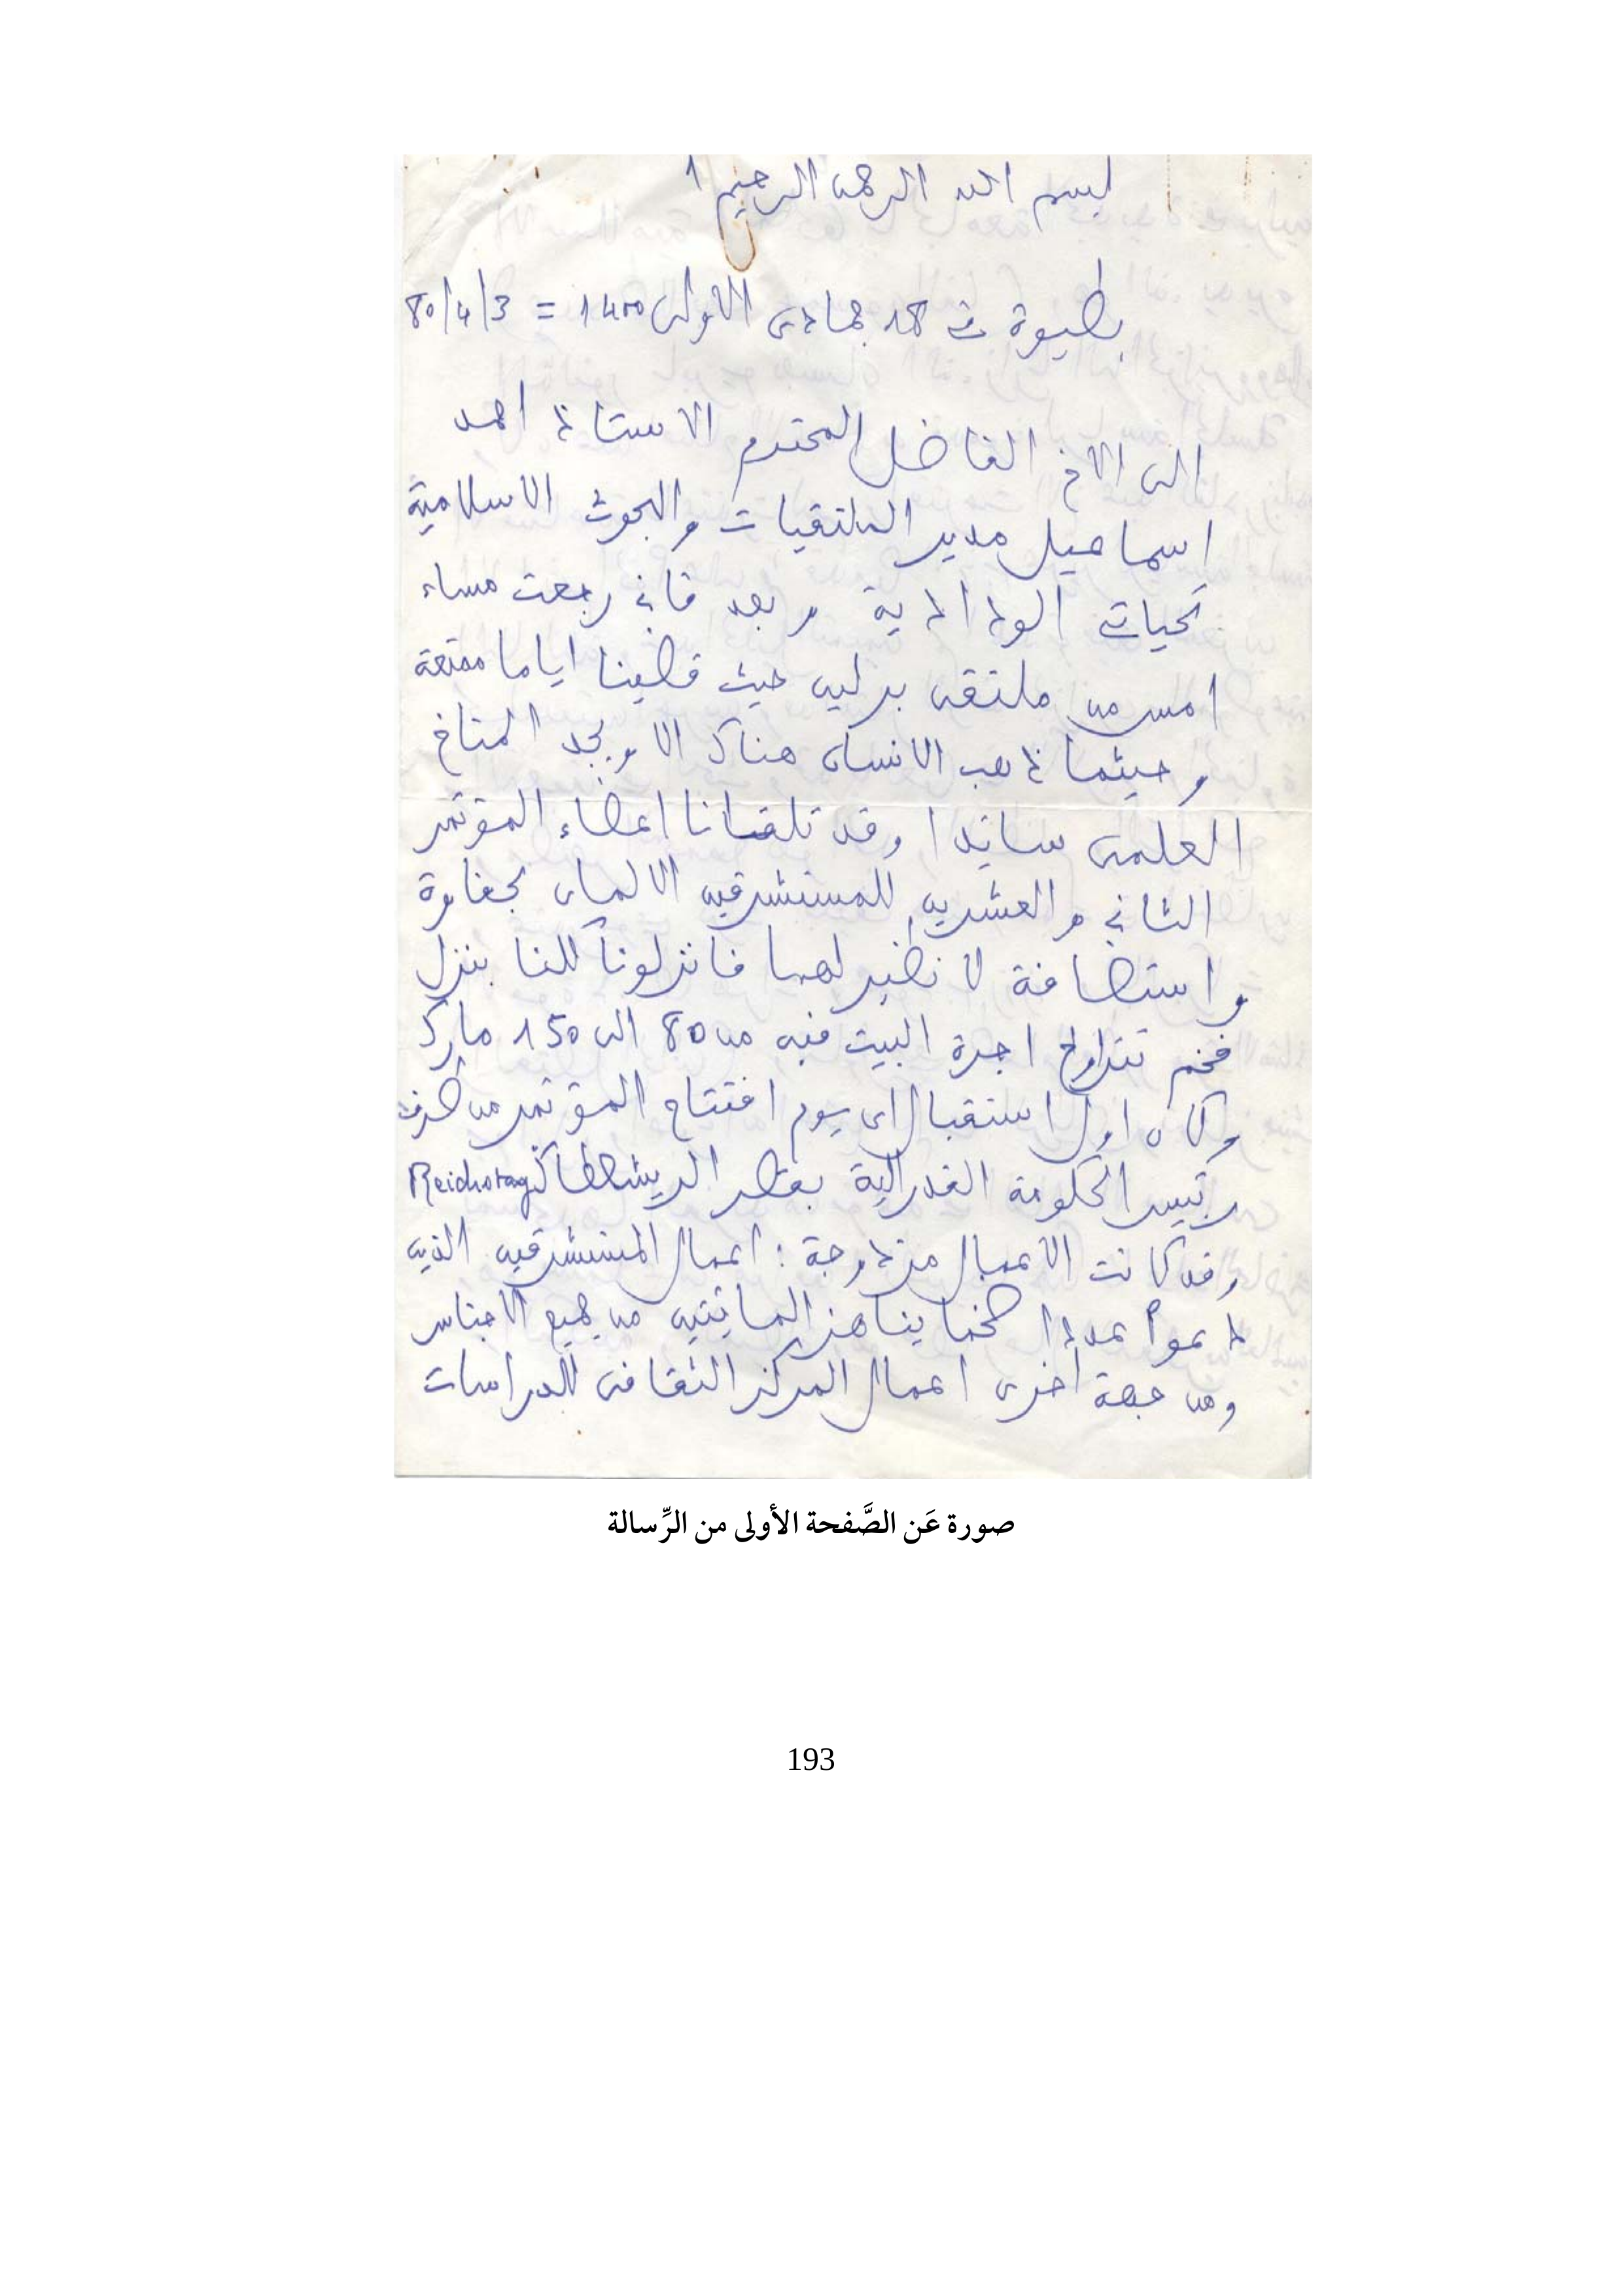 بسم الله الرحمن الرحيم 1
بطيوة في جمادى الاولى 1400 = 80/4/3
الى الاخ الفاضل المحترم الاستاذ احمد
اسماعيل مدير الملتقيات والبحوث الاسلامية
تحياتي الودادية وبعد فاني رجعت مساء
امس من ملتقى برلين حيث قضينا اياما ممتعة
وحيثما ذهب الانسان هناك الا ويجد المناخ
العلمى سائدا وقد تلقانا اعضاء المؤتمر
الثاني والعشرين للمستشرقين الالمان بحفاوة
واستضافة لا نظير لهما فانزلونا كلنا بنزل
فخم تتراوح اجرة البيت فيه من 80 الى 150 مارك
وكان اول استقبال اى يوم افتتاح المؤتمر من طرف
رئيس الحكومة الفدرالية بقصر الريشطاڨ Reichstag
وقد كانت الأعمال مزدوجة: اعمال المستشرقين الذين
دعوا عددا ضخما يناهز المائتين من جميع الاجناس
ومن جهة أخرى اعمال المركز الثقافى للدراسات
صورة عَن الصَّفحة الأولى من الرِّسالة
193